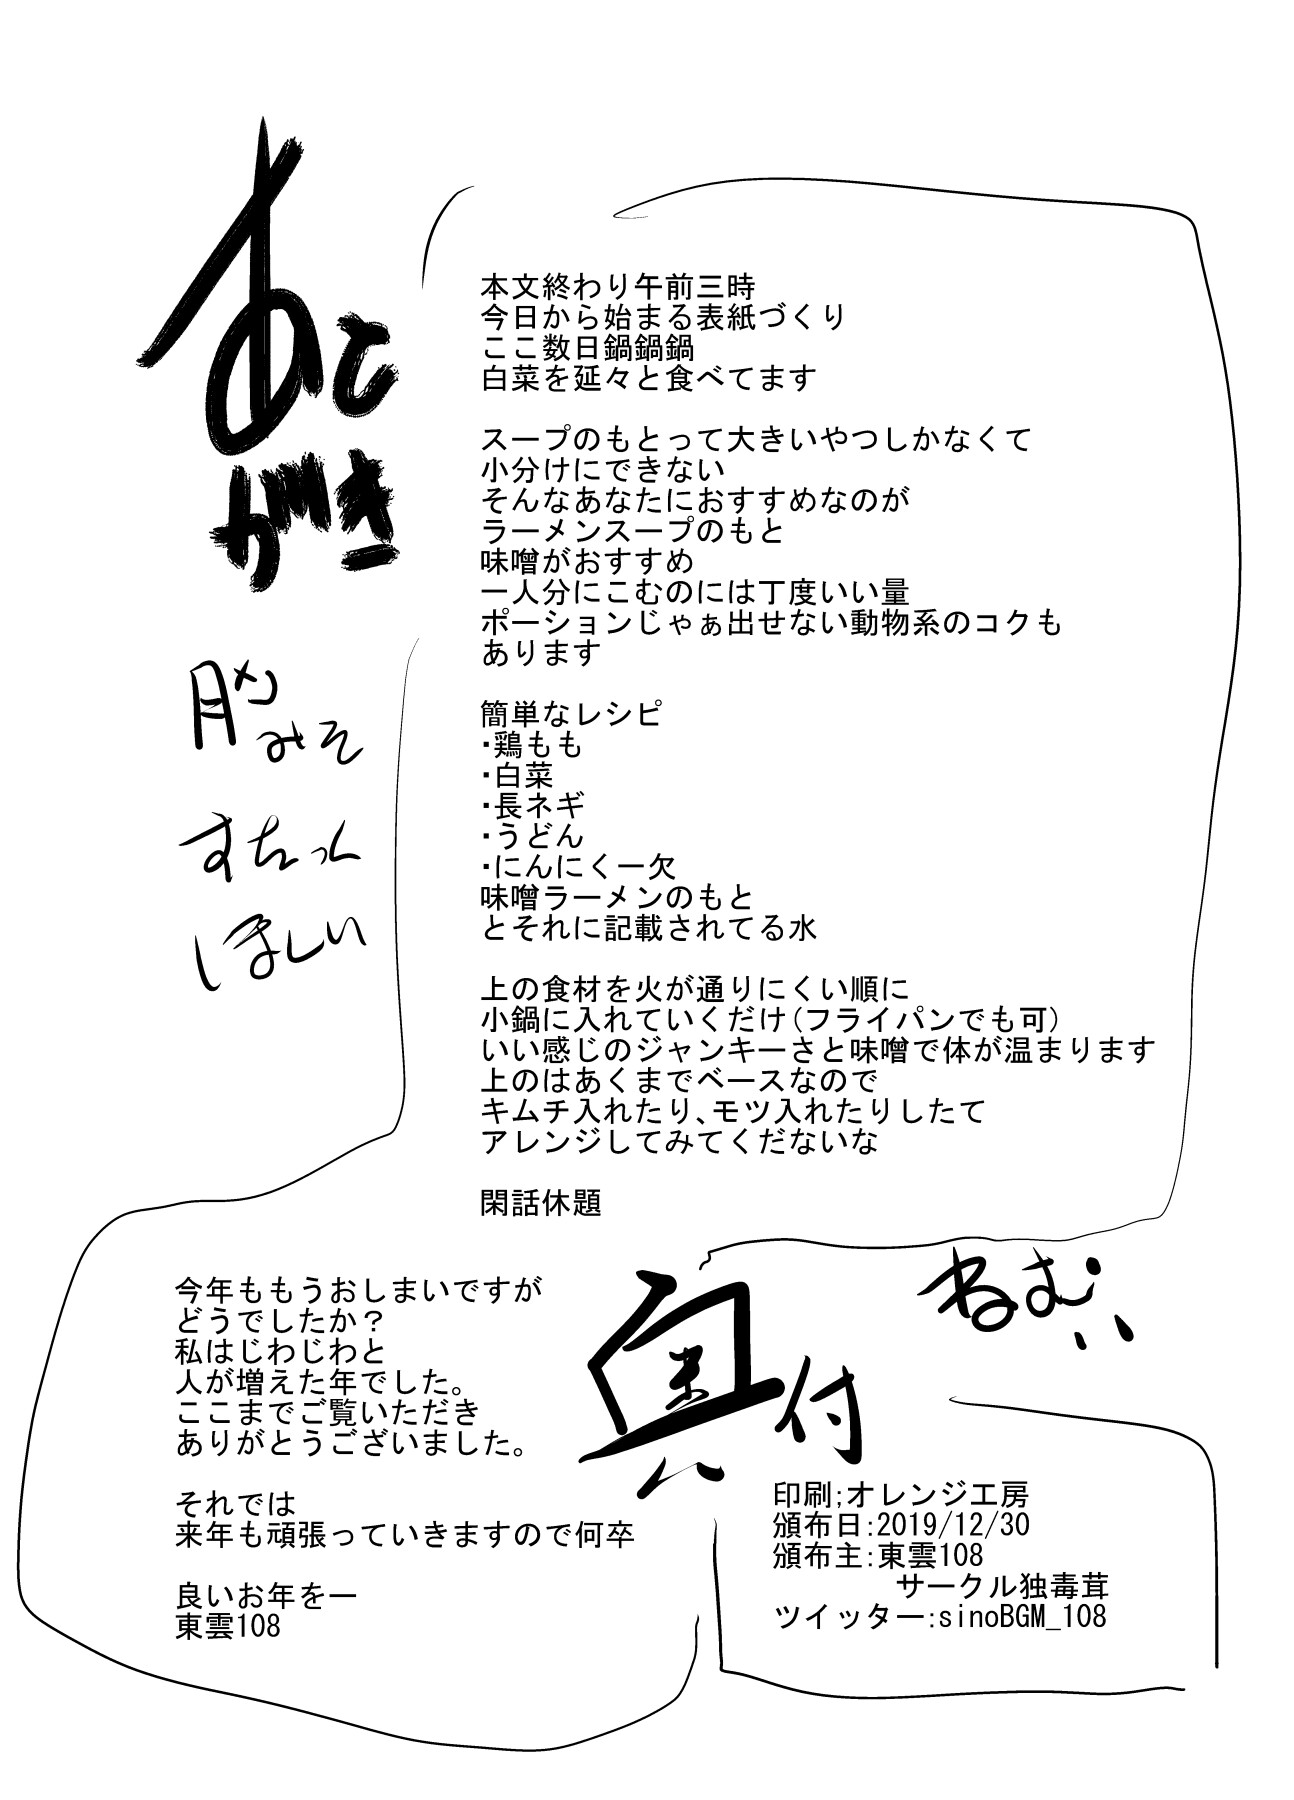 あとがき
本文終わり午前三時
今日から始まる表紙づくり
ここ数日鍋鍋鍋
白菜を延々と食べてます
スープのもとって大きいやつしかなくて
小分けにできない
そんなあなたにおすすめなのが
ラーメンスープのもと
味噌がおすすめ
一人分にこむのには丁度いい量
ポーションじゃぁ出せない動物系のコクも
あります
簡単なレシピ
・鶏もも
・白菜
・長ネギ
・うどん
・にんにく一欠
味噌ラーメンのもと
とそれに記載されてる水
上の食材を火が通りにくい順に
小鍋に入れていくだけ(フライパンでも可)
いい感じのジャンキーさと味噌で体が温まります
上のはあくまでベースなので
キムチ入れたり、モツ入れたりしたて
アレンジしてみてくだないな
閑話休題
みそ
すたっく
ほしい
今年ももうおしまいですが
どうでしたか？
私はじわじわと
人が増えた年でした。
ここまでご覧いただき
ありがとうございました。
それでは
来年も頑張っていきますので何卒
良いお年をー
東雲108
奥付
ねむい
印刷;オレンジ工房
頒布日:2019/12/30
頒布主:東雲108
サークル独毒茸
ツイッター:sinoBGM_108